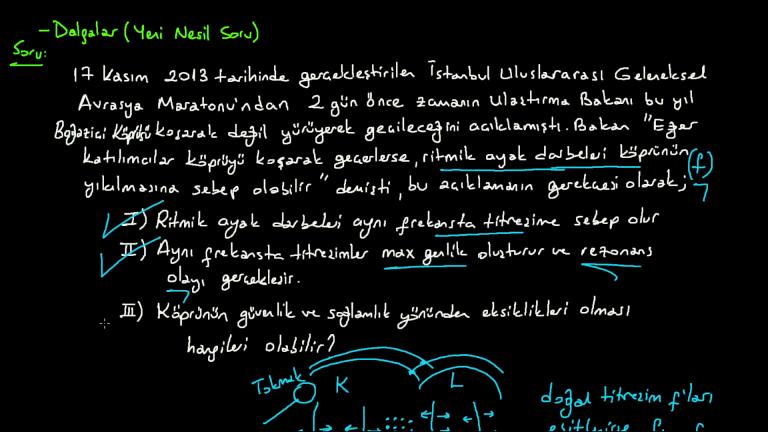 - Dalgalar (Yeni Nesil Soru)
Soru:
17 Kasım 2013 tarihinde gerçekleştirilen İstanbul Uluslararası Geleneksel
Avrasya Maratonu'ndan 2 gün önce zamanın Ulaştırma Bakanı bu yıl
Boğaziçi Köprüsü koşarak değil yürüyerek geçileceğini açıklamıştı. Bakan "Eğer
katılımcılar köprüyü koşarak geçerlerse, ritmik ayak darbeleri köprünün (f)
yıkılmasına sebep olabilir" demişti, bu açıklamanın gerekçesi olarak;
I) Ritmik ayak darbeleri aynı frekansta titreşime sebep olur
II) Aynı frekansta titreşimler max genlik oluşturur ve rezonans
olayı gerçekleşir.
III) Köprünün güvenlik ve sağlamlık yönünden eksiklikleri olması
hangileri olabilir?
Tokmak K L
doğal titreşim f'ları